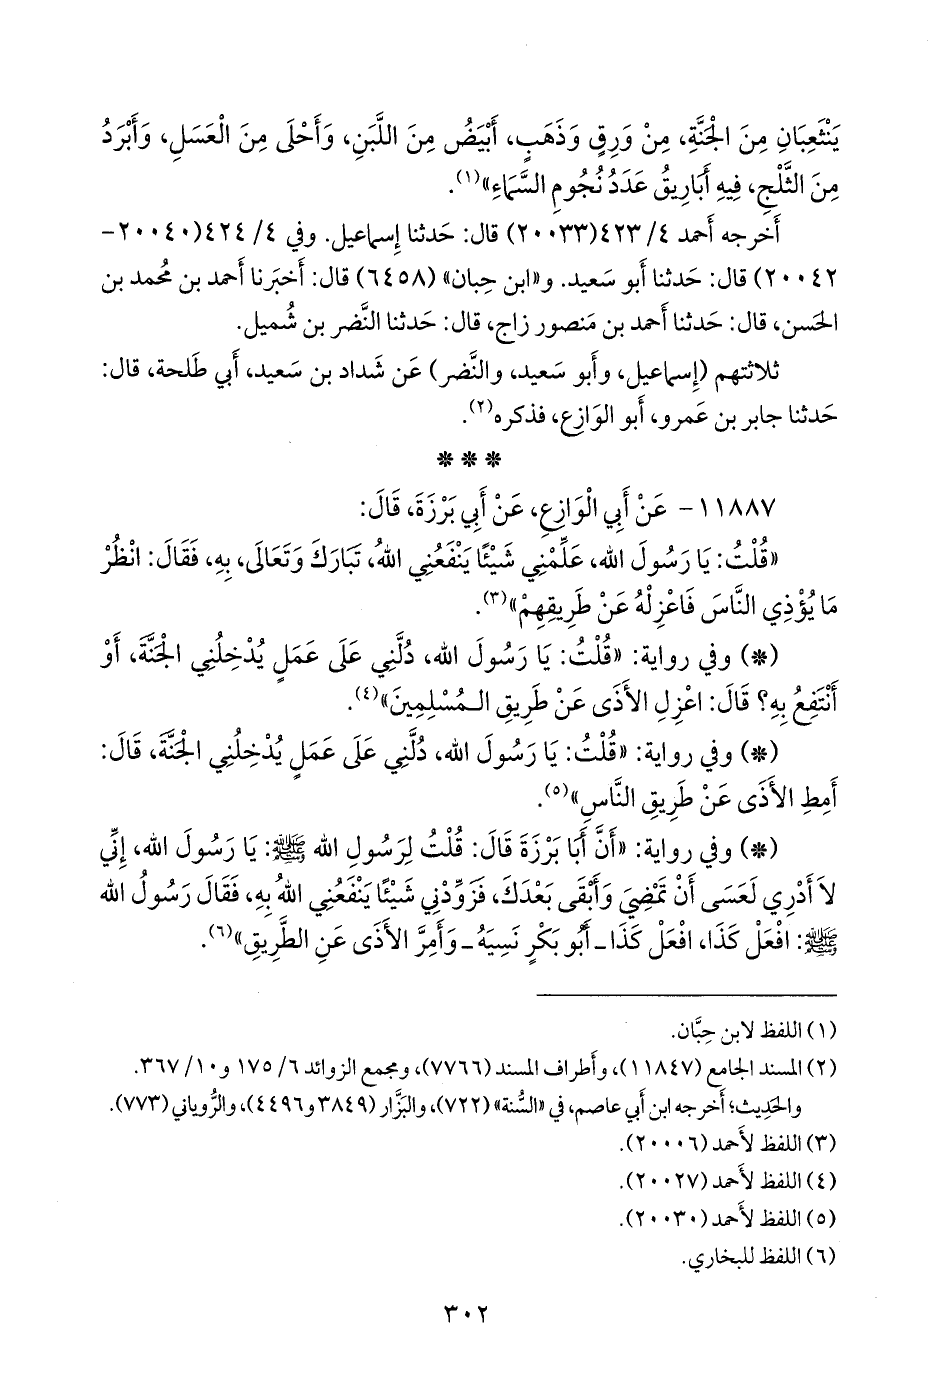 يَنْثَعِبَانِ مِنَ الْجَنَّةِ، مِنْ وَرِقٍ وَذَهَبٍ، أَبْيَضُ مِنَ اللَّبَنِ، وَأَحْلَى مِنَ الْعَسَلِ، وَأَبْرَدُ
مِنَ الثَّلْجِ، فِيهِ أَبَارِيقُ عَدَدُ نُجُومِ السَّمَاءِ»(١).
أَخرجه أَحمد ٤/ ٤٢٣(٢٠٠٣٣) قال: حَدثنا إِسماعيل. وفي ٤/ ٤٢٤(٢٠٠٤٠-
٢٠٠٤٢) قال: حَدثنا أَبو سَعيد. و«ابن حِبان» (٦٤٥٨) قال: أَخبَرنا أَحمد بن مُحمد بن
الحَسن، قال: حَدثنا أَحمد بن مَنصور زاج، قال: حَدثنا النَّضر بن شُميل.
ثلاثتهم (إِسماعيل، وأَبو سَعيد، والنَّضر) عَن شَداد بن سَعيد، أَبي طَلحة، قال:
حَدثنا جابر بن عَمرو، أَبو الوَازِع، فذكره(٢).
* * *
١١٨٨٧- عَنْ أَبِي الْوَازِعِ، عَنْ أَبِي بَرْزَةَ، قَالَ:
«قُلْتُ: يَا رَسُولَ الله، عَلِّمْنِي شَيْئًا يَنْفَعُنِي اللهُ، تَبَارَكَ وَتَعَالَى، بِهِ، فَقَالَ: انْظُرْ
مَا يُؤْذِي النَّاسَ فَاعْزِلْهُ عَنْ طَرِيقِهِمْ»(٣).
(*) وفي رواية: «قُلْتُ: يَا رَسُولَ الله، دُلَّنِي عَلَى عَمَلٍ يُدْخِلُنِي الْجَنَّةَ، أَوْ
أَنْتَفِعُ بِهِ؟ قَالَ: اعْزِلِ الأَذَى عَنْ طَرِيقِ الـمُسْلِمِينَ»(٤).
(*) وفي رواية: «قُلْتُ: يَا رَسُولَ الله، دُلَّنِي عَلَى عَمَلٍ يُدْخِلُنِي الْجَنَّةَ، قَالَ:
أَمِطِ الأَذَى عَنْ طَرِيقِ النَّاسِ»(٥).
(*) وفي رواية: «أَنَّ أَبَا بَرْزَةَ قَالَ: قُلْتُ لِرَسُولِ الله ﷺ: يَا رَسُولَ الله، إِنِّي
لاَ أَدْرِي لَعَسَى أَنْ تَمْضِيَ وَأَبْقَى بَعْدَكَ، فَزَوِّدْنِي شَيْئًا يَنْفَعُنِي اللهُ بِهِ، فَقَالَ رَسُولُ الله
ﷺ: افْعَلْ كَذَا، افْعَلْ كَذَا - أَبُو بَكْرٍ نَسِيَهُ - وَأَمِرَّ الأَذَى عَنِ الطَّرِيقِ»(٦).
(١) اللفظ لابن حِبَّان.
(٢) المسند الجامع (١١٨٤٧)، وأطراف المسند (٧٧٦٦)، ومجمع الزوائد ٦/ ١٧٥ و١٠/ ٣٦٧.
والحَدِيث؛ أخرجه ابن أَبي عاصم، في «السُّنة» (٧٢٢)، والبَزَّار (٣٨٤٩ و٤٤٩٦)، والرُّوياني (٧٧٣).
(٣) اللفظ لأَحمد (٢٠٠٠٦).
(٤) اللفظ لأَحمد (٢٠٠٢٧).
(٥) اللفظ لأَحمد (٢٠٠٣٠).
(٦) اللفظ للبخاري.
٣٠٢